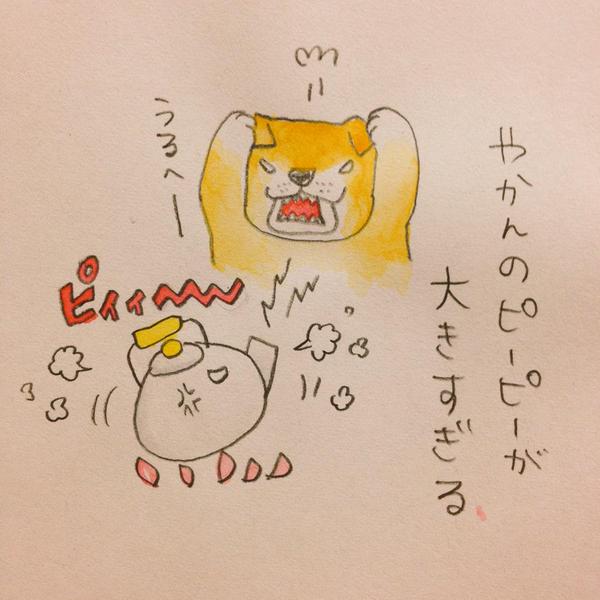 やかんのピーピーが
大きすぎる
うるへー
ピィィー